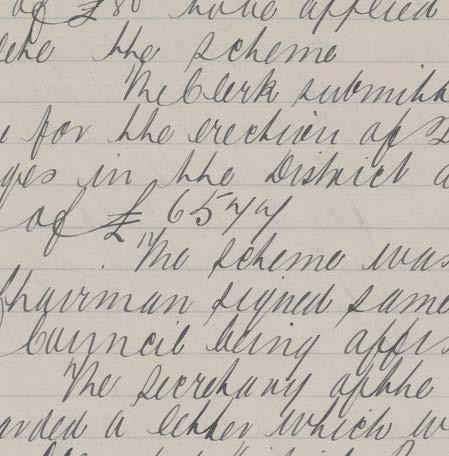 of £80 have applied
the scheme
The Clerk submitt
for the erection of
ges in the District a
of £6577
The scheme was
Chairman signed same
Council being affi
The secretary of the
arded a letter which w